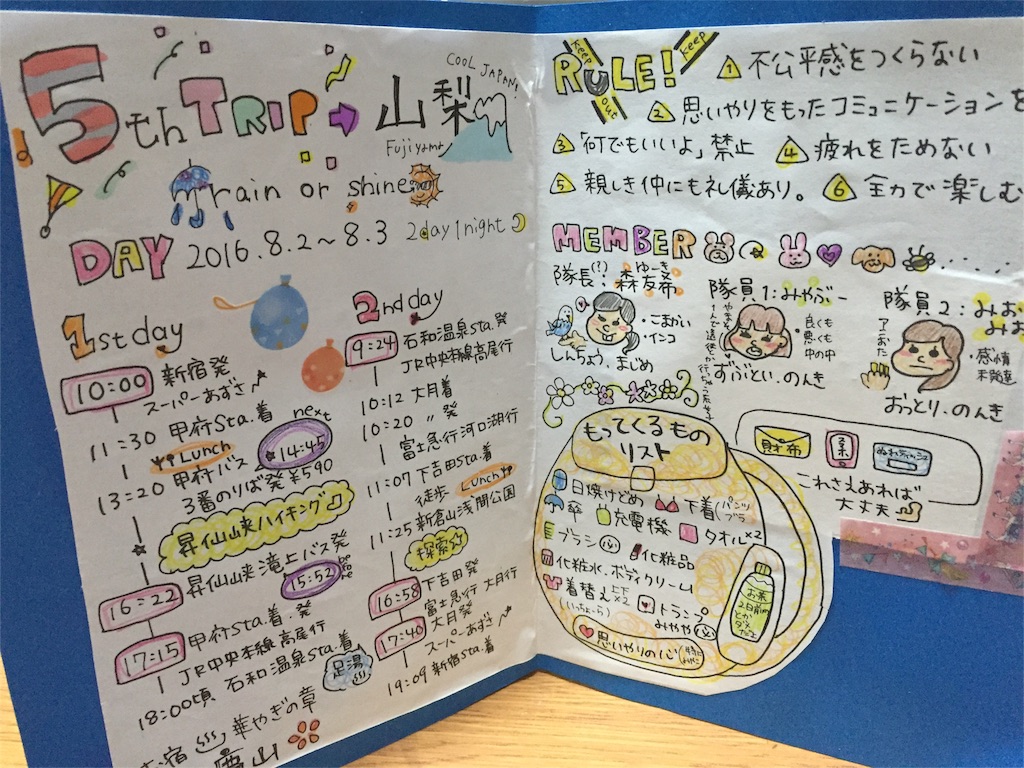 5th TRIP → 山梨
COOL JAPAN!
Fujiyama
rain or shine
DAY 2016.8.2～8.3 2day1night
1st day
10:00 新宿発
スーパーあずさ
11:30 甲府Sta.着
Lunch
next 14:45
13:20 甲府バス
3番のりば発 ¥590
昇仙峡ハイキング♪
昇仙峡滝上バス発
16:22
15:52
甲府Sta.着・発
17:15
JR中央本線高尾行
18:00頃 石和温泉Sta.着
足湯
宿 華やぎの章
慶山
2nd day
9:24 石和温泉Sta.発
JR中央本線高尾行
10:12 大月着
10:20 〃 発
富士急行河口湖行
11:07 下吉田Sta.着
徒歩 Lunch
11:25 新倉山浅間公園
探索☆
16:58 下吉田発
富士急行 大月行
17:40 大月発
スーパーあずさ
19:09 新宿Sta.着
RULE!
Keep
out
Keep
1 不公平感をつくらない
2 思いやりをもったコミュニケーションを
3 「何でもいいよ」禁止 4 疲れをためない
5 親しき仲にも礼儀あり。 6 全力で楽しむ
MEMBER
隊長(?): 森友希
ゆーき
・こまかい
・インコ
しんちょう、まじめ
隊員1:みやぶー
・良くも
悪くも
中の中
ずぶとい、のんき
隊員2:みお
アニおた
・感情
未発達
おっとり、のんき
もってくるもの
リスト
日焼けどめ 下着(パンツ
ブラ
傘 充電機 タオル×2
ブラシ 化粧品
化粧水、ボディクリーム
着替え 上下×2
トランプ
みやや
思いやりの心
お茶
2日前の
とか
ダメ
だよ
財布
スマホ
ぬれティッシュ
これさえあれば
大丈夫